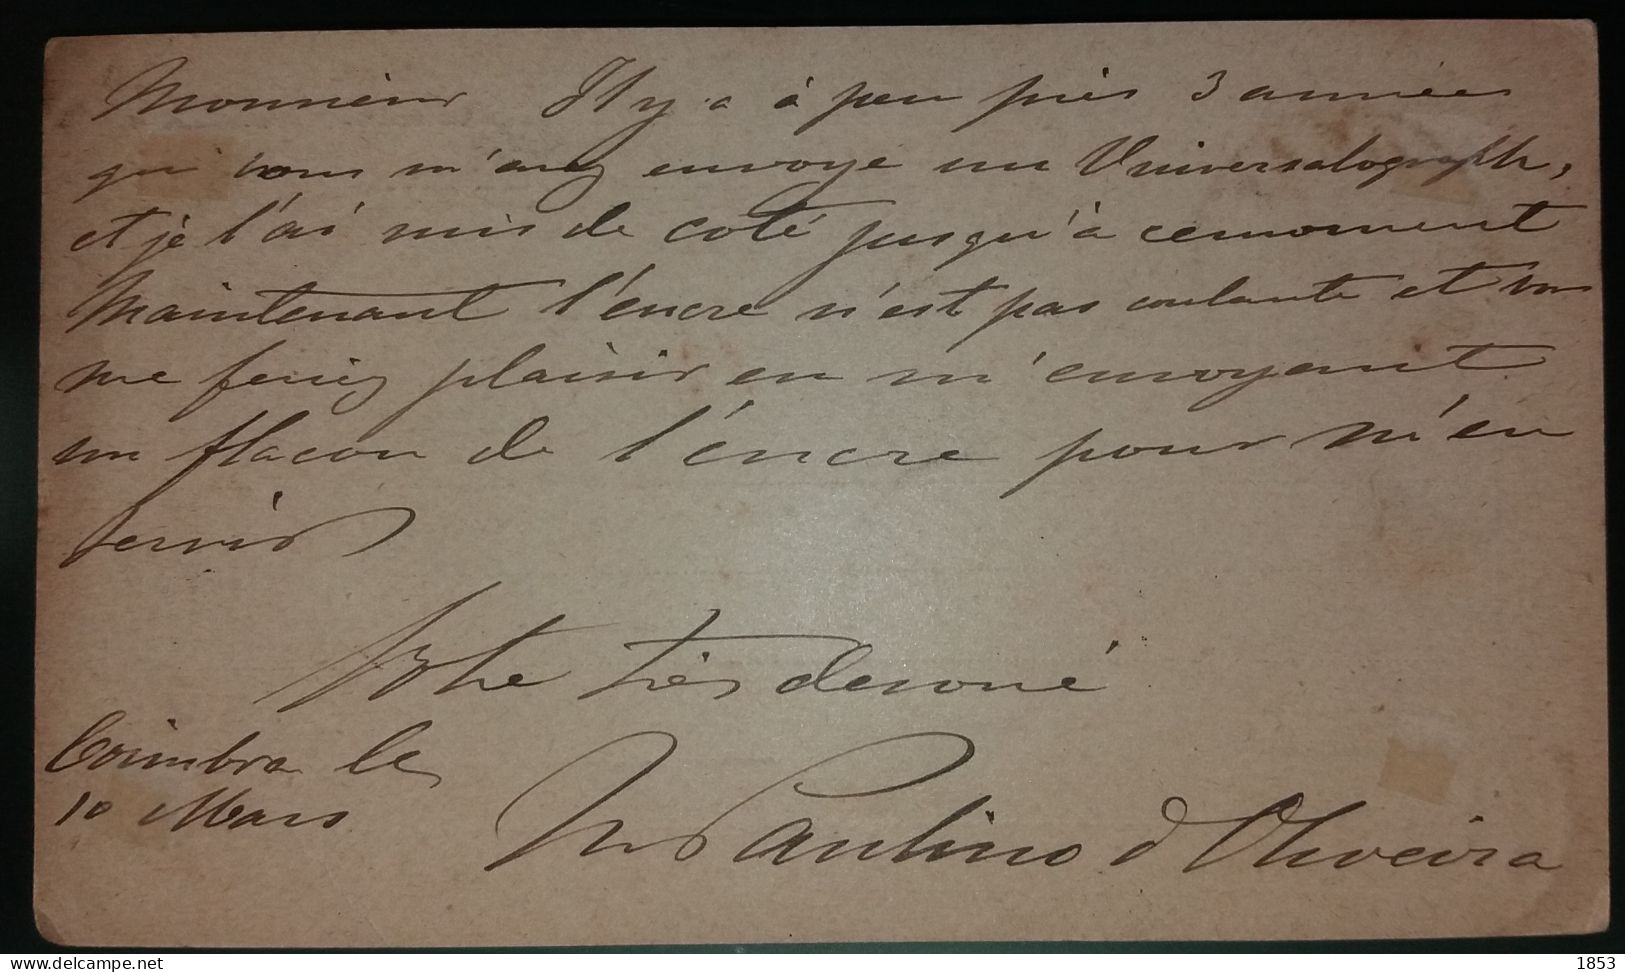 Monsieur Il y a à peu près 3 années
qui vous m'avez envoyé un Universalograph,
et je l'ai mis de coté jusqu'à cemoment
Maintenant l'encre n'est pas coulante et vous
me feriez plaisir en m'envoyant
un flacon de l'encre pour m'en
servir
Votre très devoué
Coimbra le
10 Mars
Paulino d'Oliveira
delcampe.net
1853